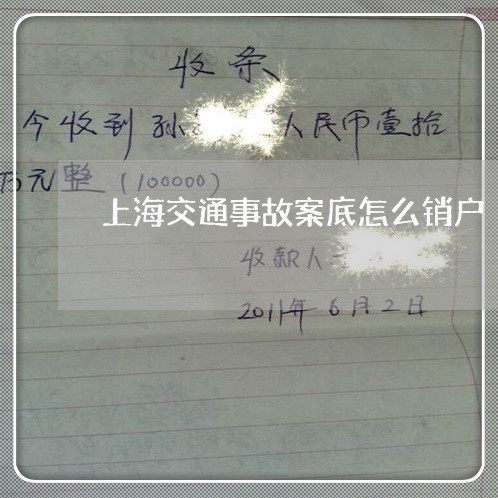 收条
今收到孙人民币壹拾
万元整(100000)
上海交通事故案底怎么销户
收款人
2011年6月2日